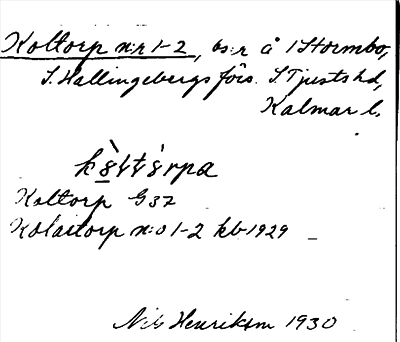 Koltorp n:r 1-2, bs:r å 1 Stormbo,
S. Hallingebergs förs. S Tjusts hd,
Kalmar l.
Koltorp G 37
Kolartorp n:o 1-2 kb 1929
Nils Henriksson 1930